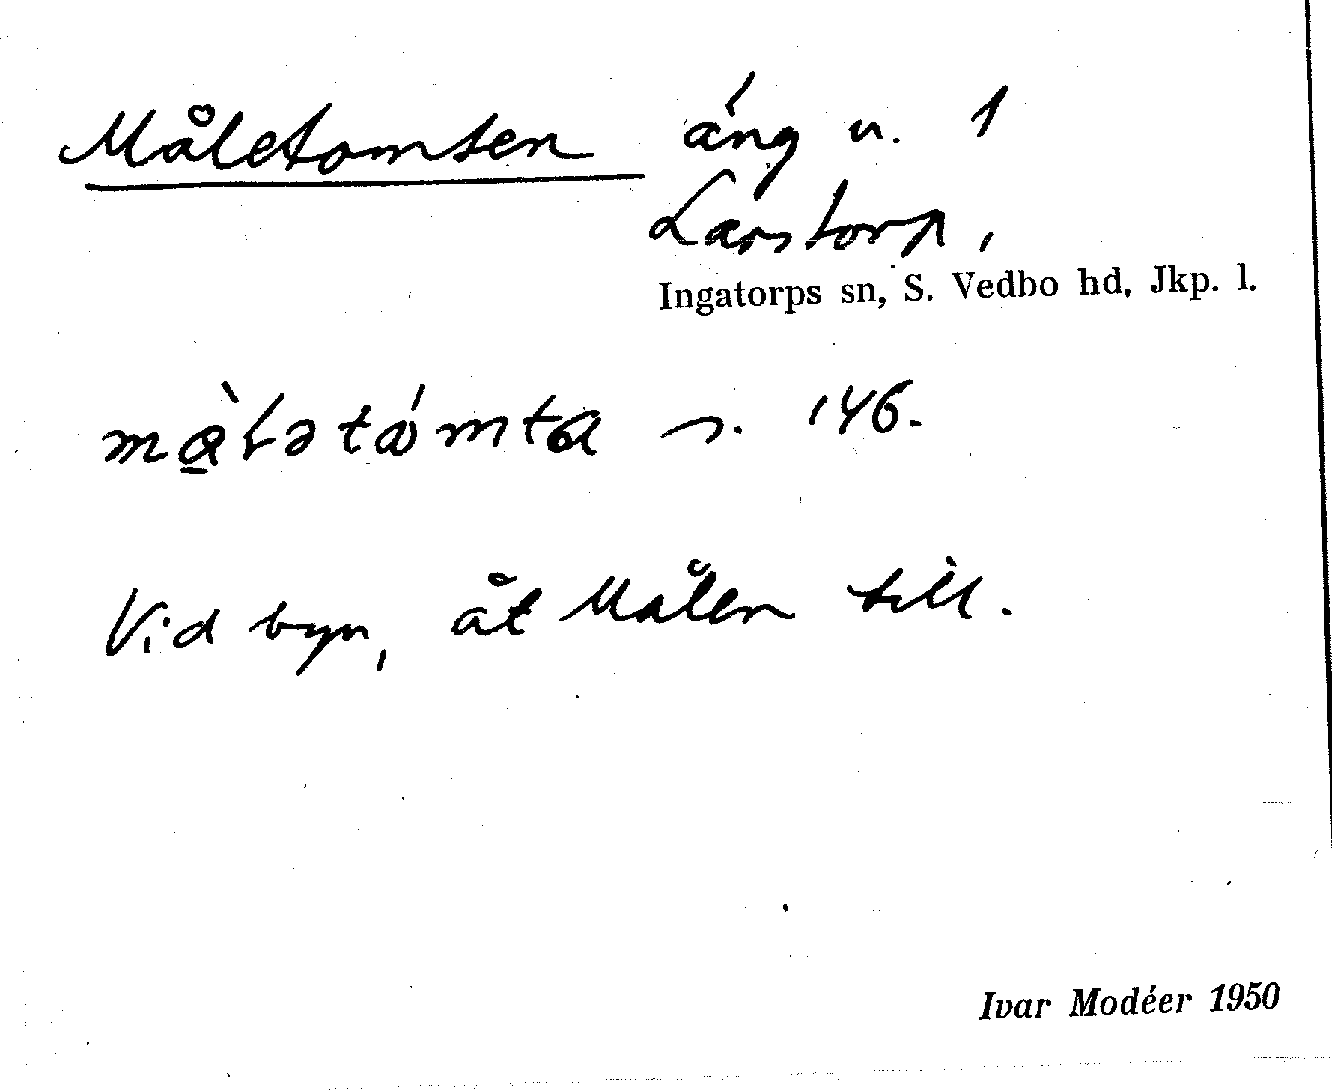 Måletomten äng u. 1
Larstorp,
Ingatorps sn, S. Vedbo hd, Jkp. l.
s. 146.
Vid byn, åt Målen till.
Ivar Modéer 1950